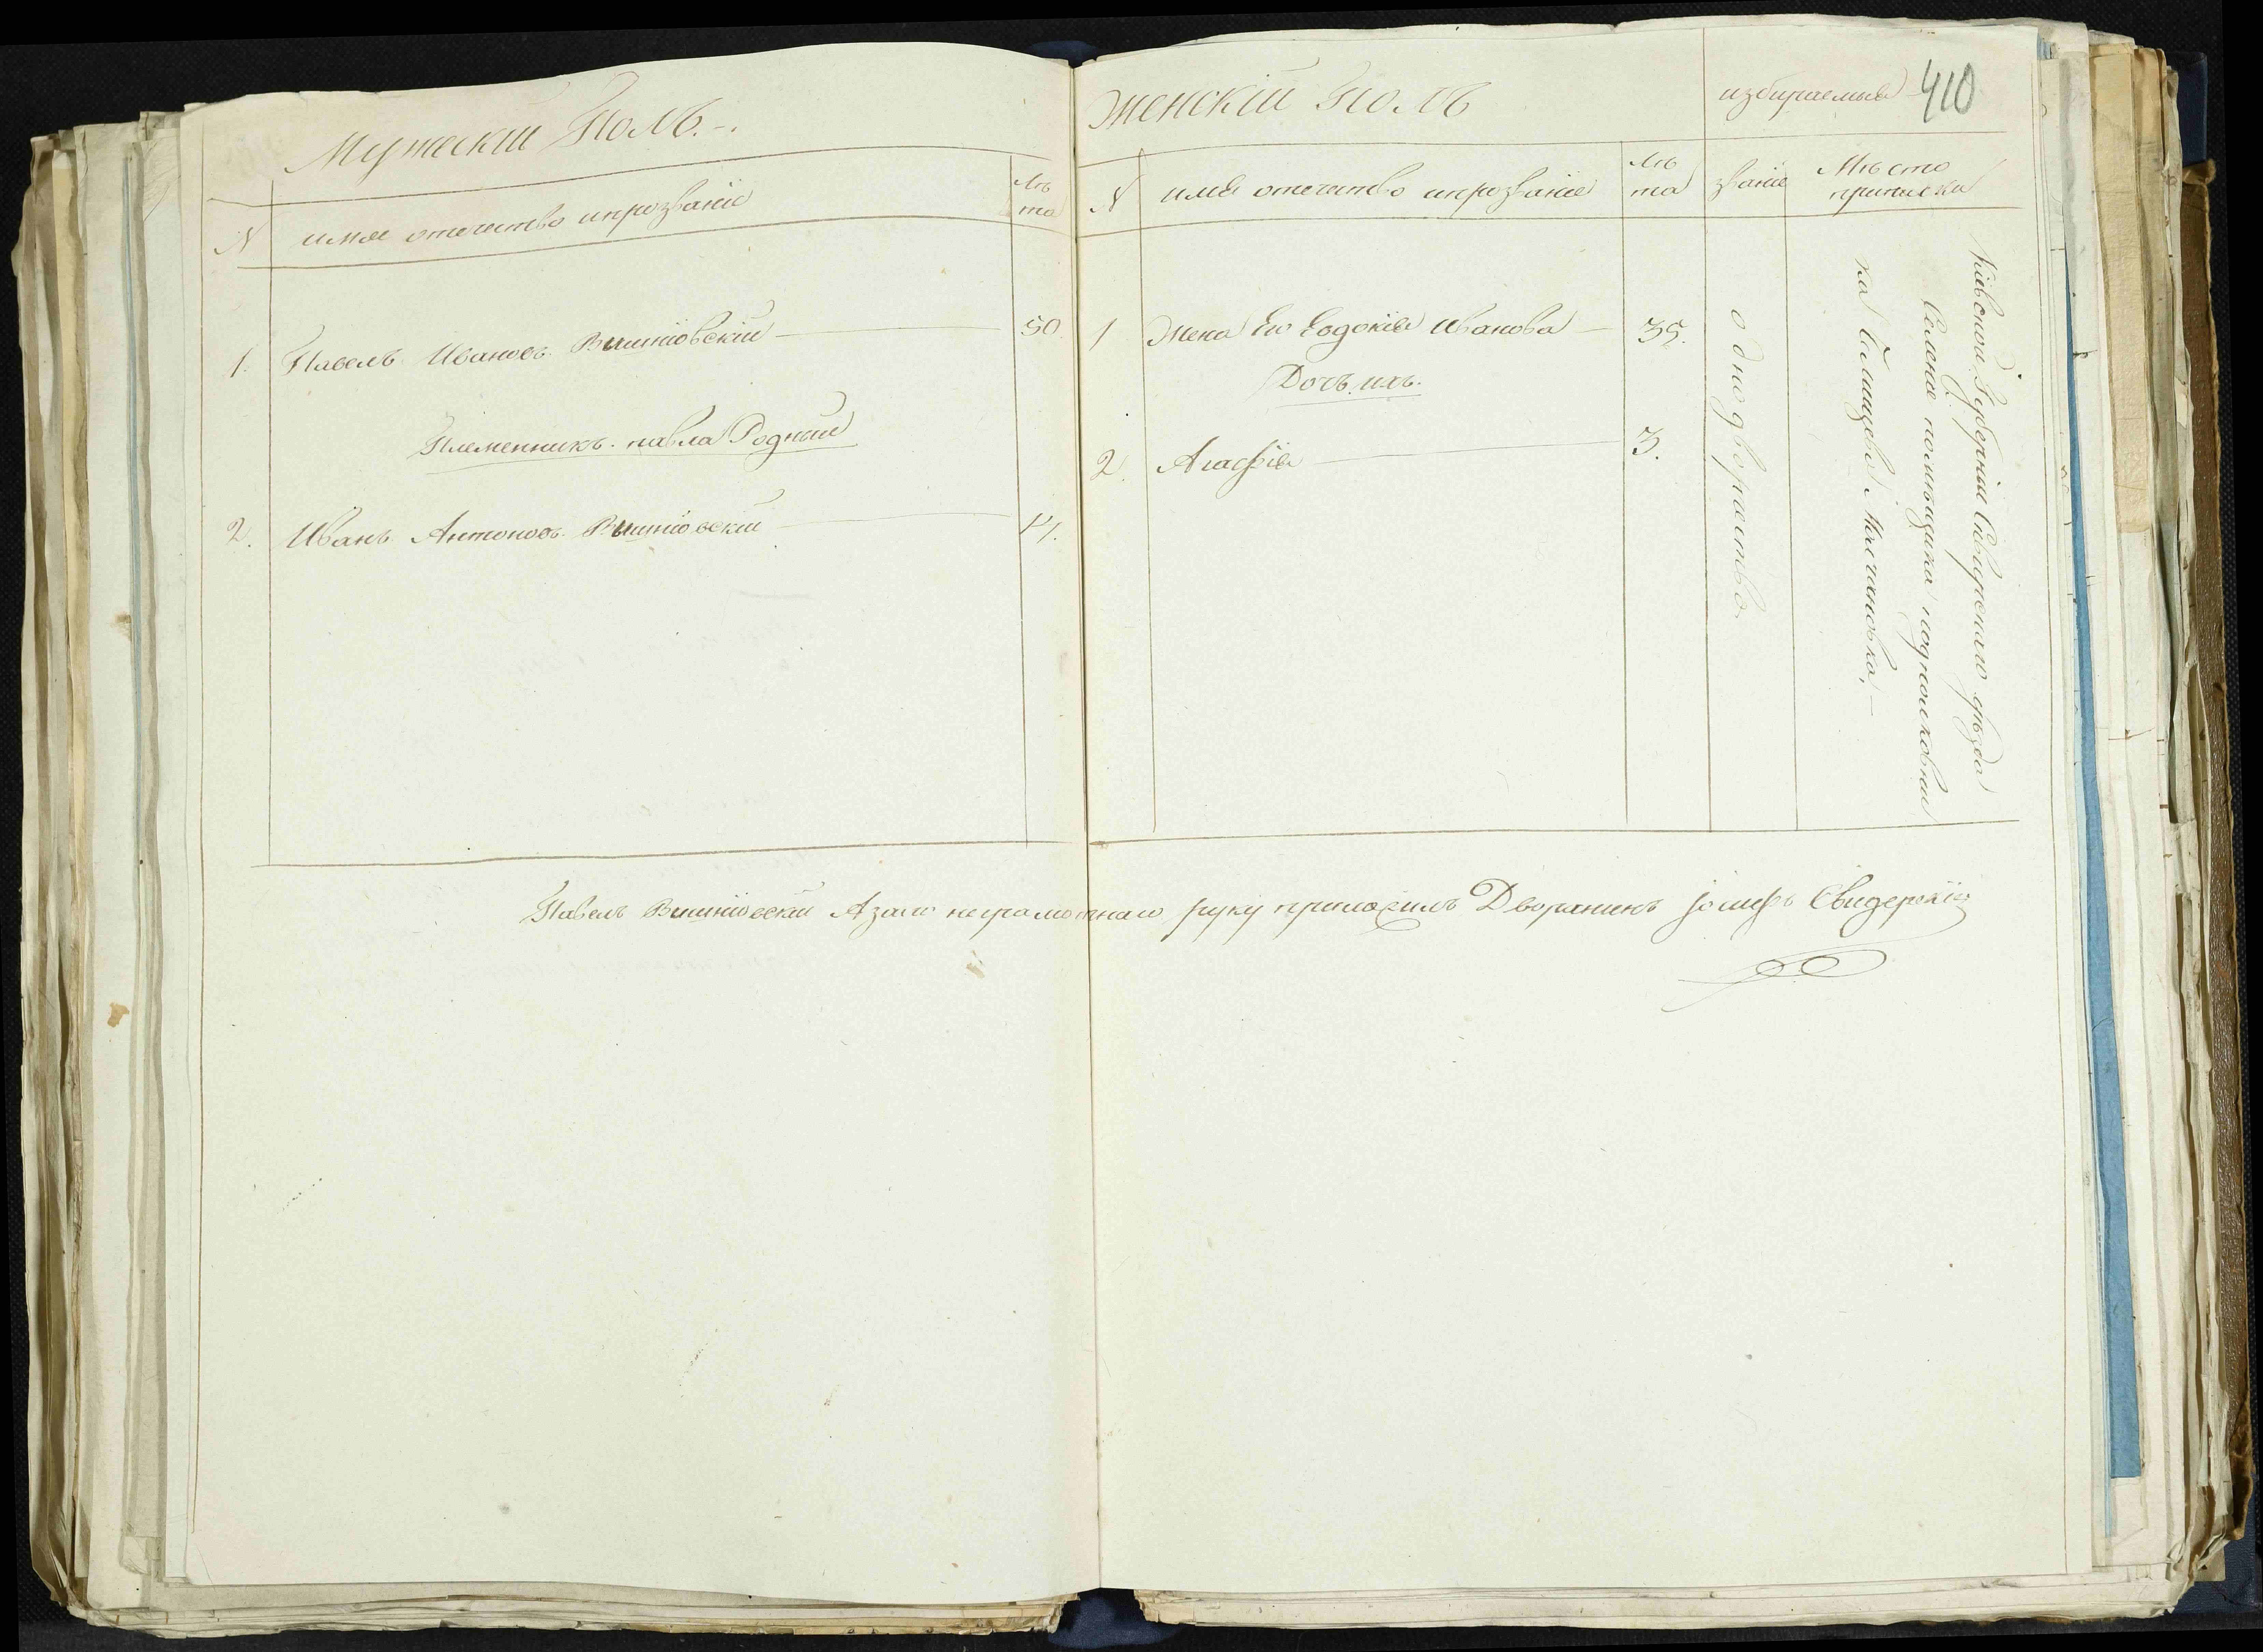 Мужескій Полъ.
N имя отечество ипрозваніе лѣта
1. Павелъ Ивановъ Вишніовскій 50
Племенникъ павла Родный
2. Иванъ Антоновъ Вишніовскій 17.
410
Женскій Полъ
избираемые
N имя отечество ипрозваніе лѣта званіе Мѣсто приписки
1 Жена Его Евдокія Иванова 35.
Дочь ихъ.
2. Агафія 3.
однодворчество
Кіевской Губерніи Сквирскаго уѣзда
Селеніе помѣщика подполковни
ка
Павелъ Вишніовскій Азаго неграмотнаго руку приложилъ Дворанинъ Іосифъ Свидерскій